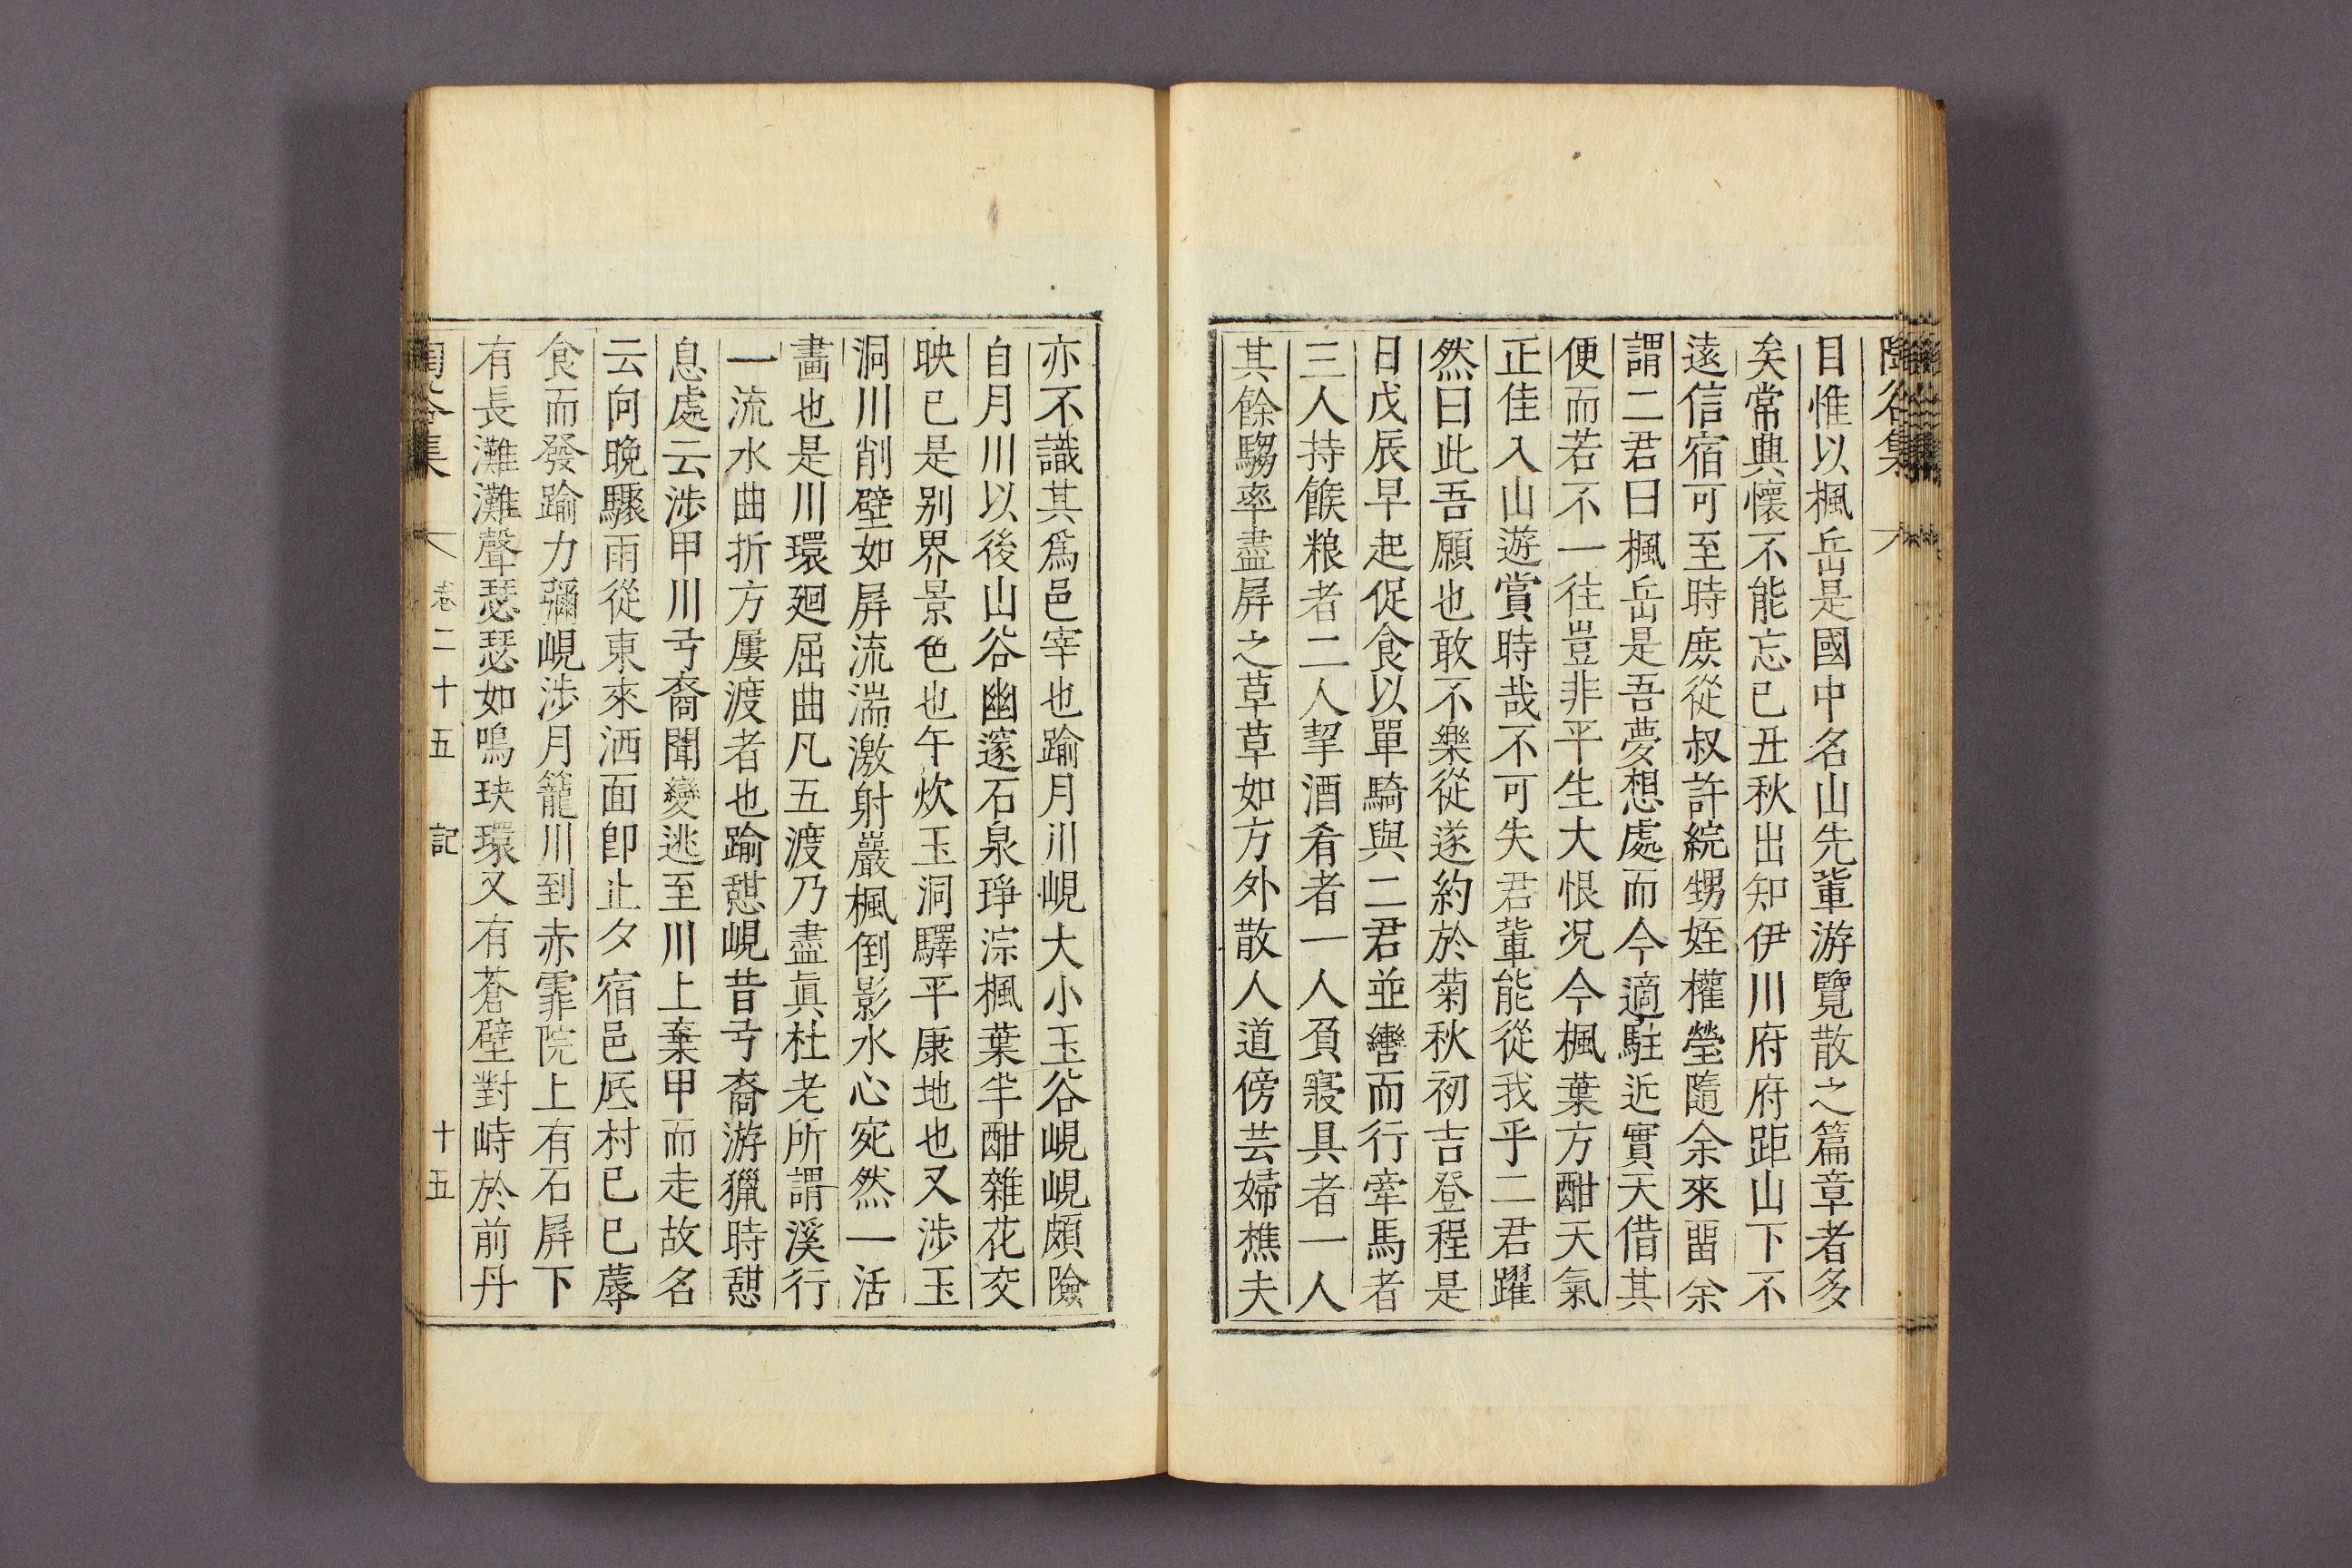 陶谷集
目惟以楓岳是國中名山先軰游覽散之篇章者多
矣常典懷不能忘已丑秋出知伊川府府距山下不
遠信宿可至時庶從叔許綂甥姪權瑩隨余來畱余
謂二君曰楓岳是吾夢想處而今適駐近實天借其
便而若不一往豈非平生大恨况今楓葉方酣天氣
正佳入山遊賞時哉不可失君軰能從我乎二君躍
然曰此吾願也敢不樂從遂約於菊秋初吉登程是
日戊辰早起促食以單騎與二君並轡而行牽馬者
三人持餱粮者二人挈酒肴者一人負寢具者一人
其餘騶率盡屏之草草如方外散人道傍芸婦樵夫
亦不識其爲邑宰也踰月川峴大小玉谷峴峴頗險
自月川以後山谷幽邃石泉琤淙楓葉半酣雜花交
映已是别界景色也午炊玉洞驛平康地也又涉玉
洞川削壁如屏流湍激射巖楓倒影水心宛然一活
畵也是川環廻屈曲凡五渡乃盡眞杜老所謂溪行
一流水曲折方屢渡者也踰憇峴昔弓裔游獵時憇
息處云涉甲川弓裔聞變逃至川上棄甲而走故名
云向晚驟雨從東來洒面卽止夕宿邑底村已巳蓐
食而發踰力彌峴涉月籠川到赤霏院上有石屏下
有長灘灘聲瑟瑟如鳴玦環又有蒼壁對峙於前丹
陶谷集 卷二十五 記 十五